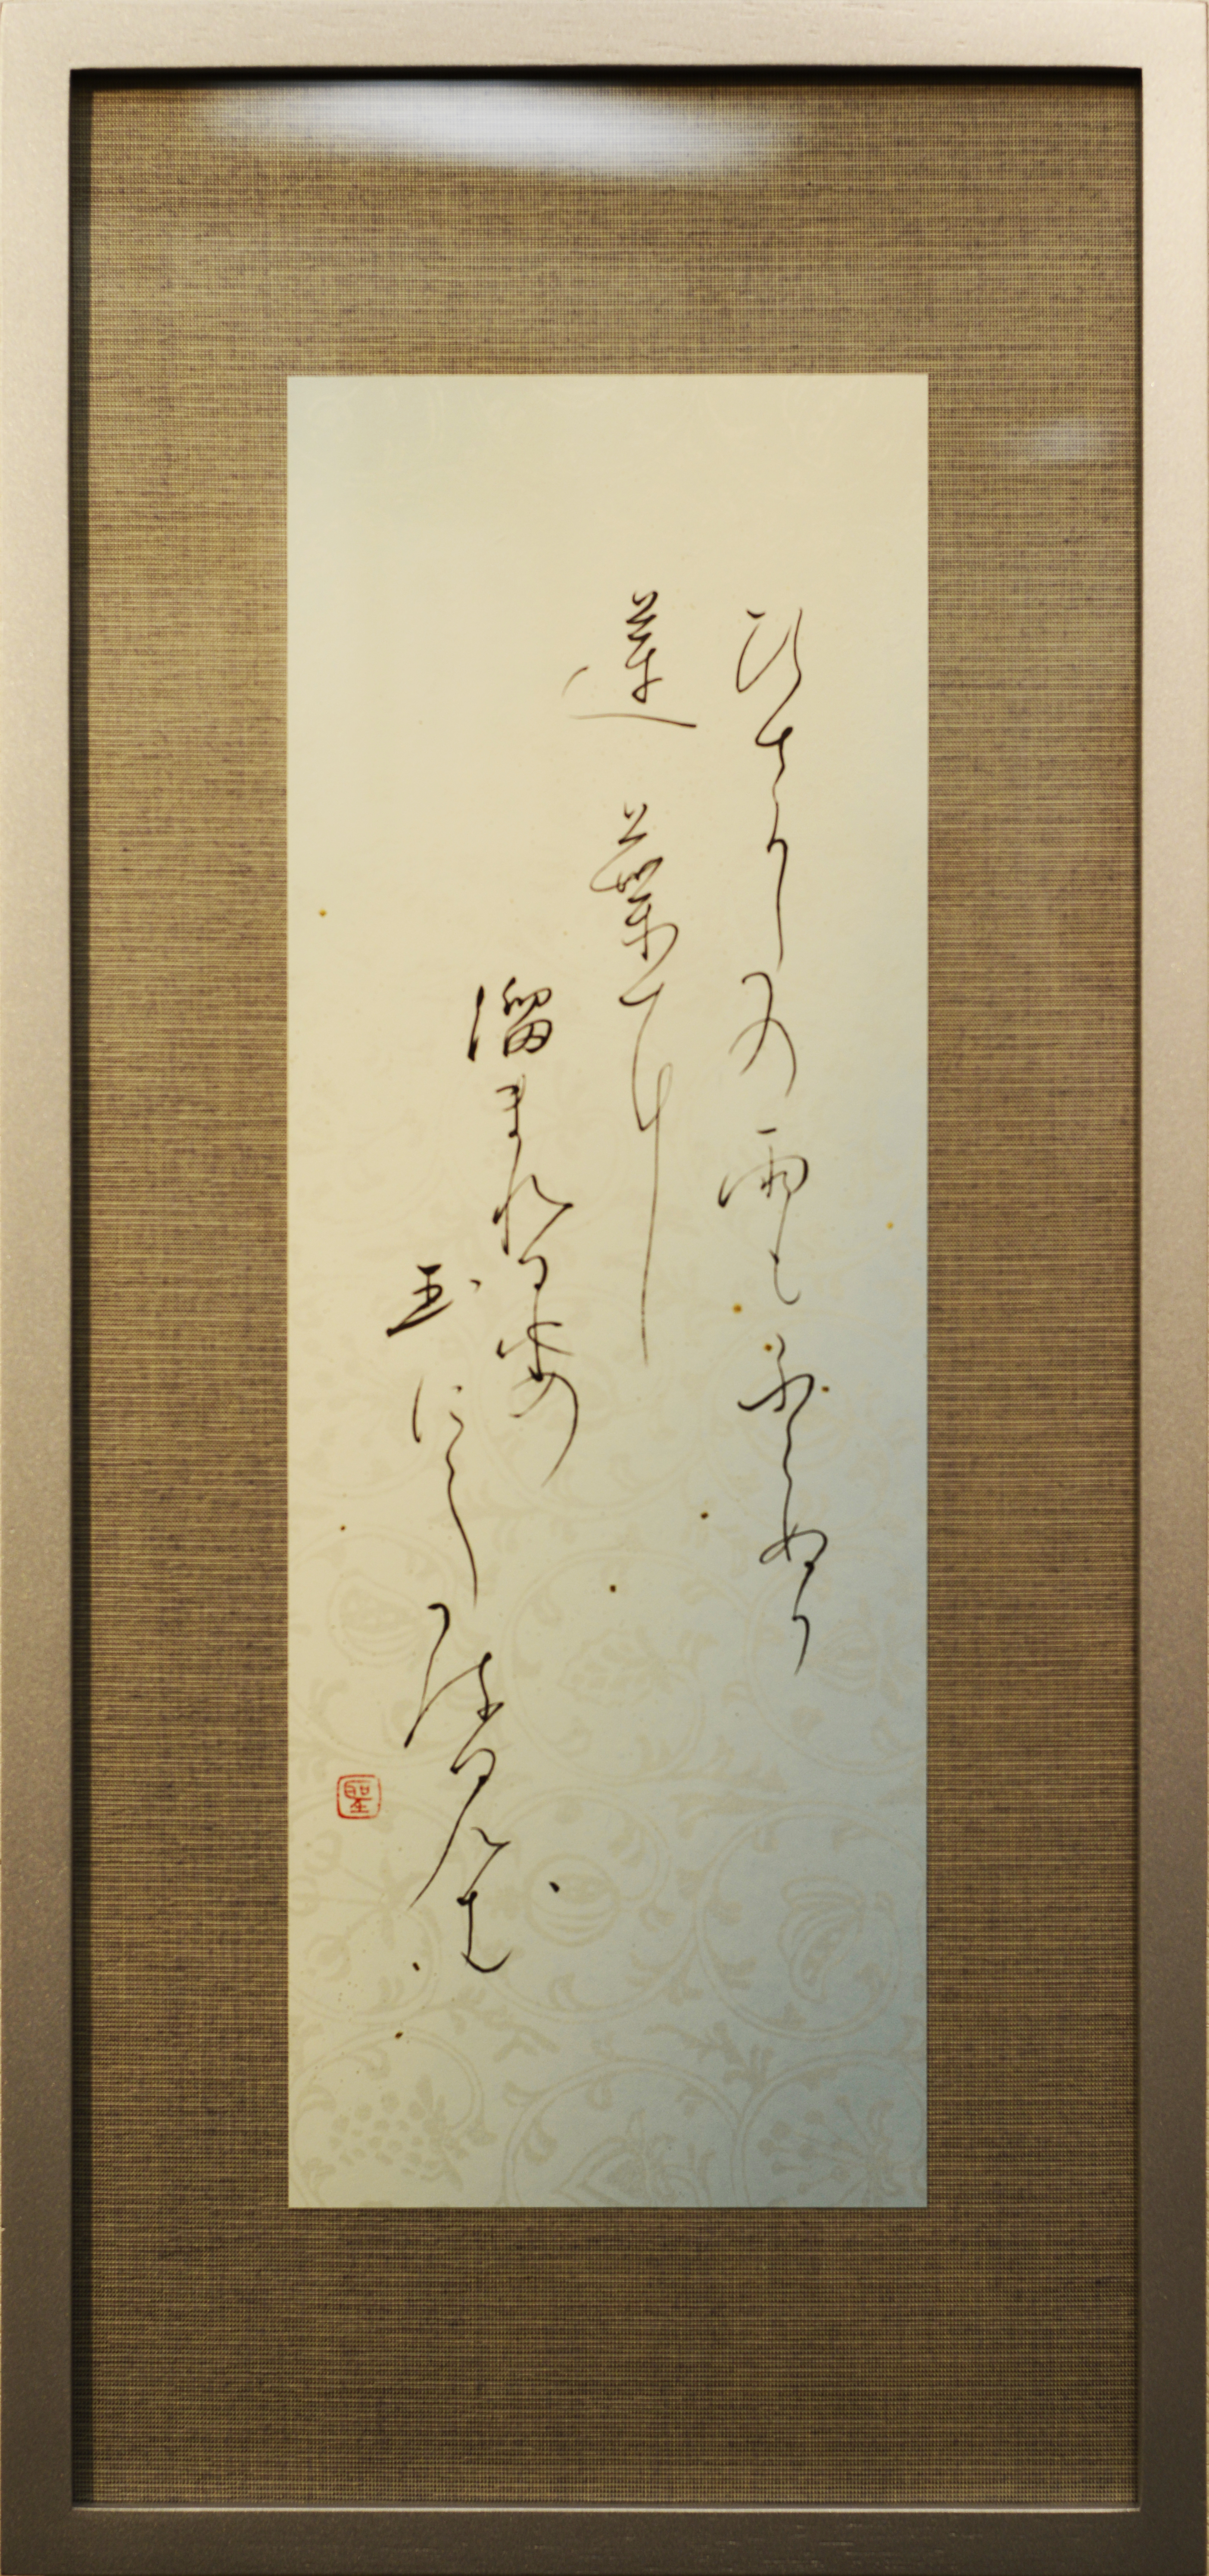 ひさかたの雨もふらぬか
蓮葉に
溜まれる水の
玉にしたる見む
聖